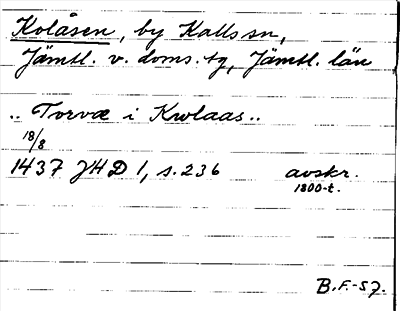 Kolåsen, by Kalls sn,
Jämtl. v. doms. tg, Jämtl. län
.. Torvæ i Krolaas ..
18/8
1437 JHD 1, s. 236 avskr.
1800-t.
B.F.-57.